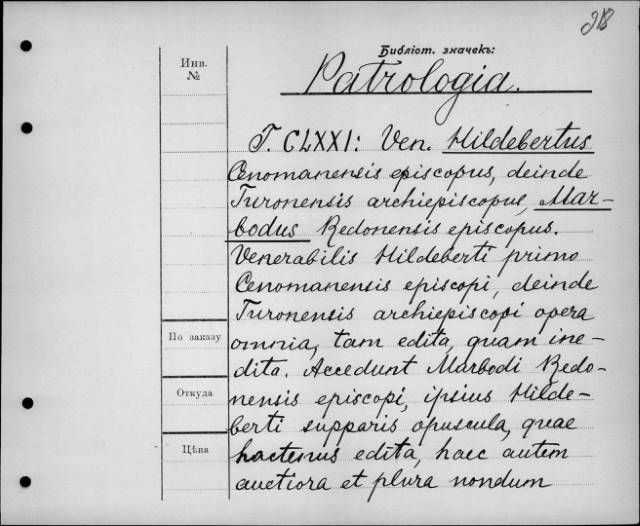 218
Библіот. значекъ:
Инв.
№
Patrologia.
T. CLXXI: Ven. Hildebertus
Cenomanensis episcopus, deinde
Turonensis archiepiscopus, Mar-
bodus Redonensis episcopus.
Venerabilis Hildeberti primo
Cenomanensis episcopi, deinde
Turonensis archiepiscopi opera
omnia, tam edita, quam ine-
dita. Accedunt Marbodi Redo-
nensis episcopi, ipsius Hilde-
berti supparis opuscula, quae
hactenus edita, haec autem
auctiora et plura nondum
По заказу
Откуда
Цѣна